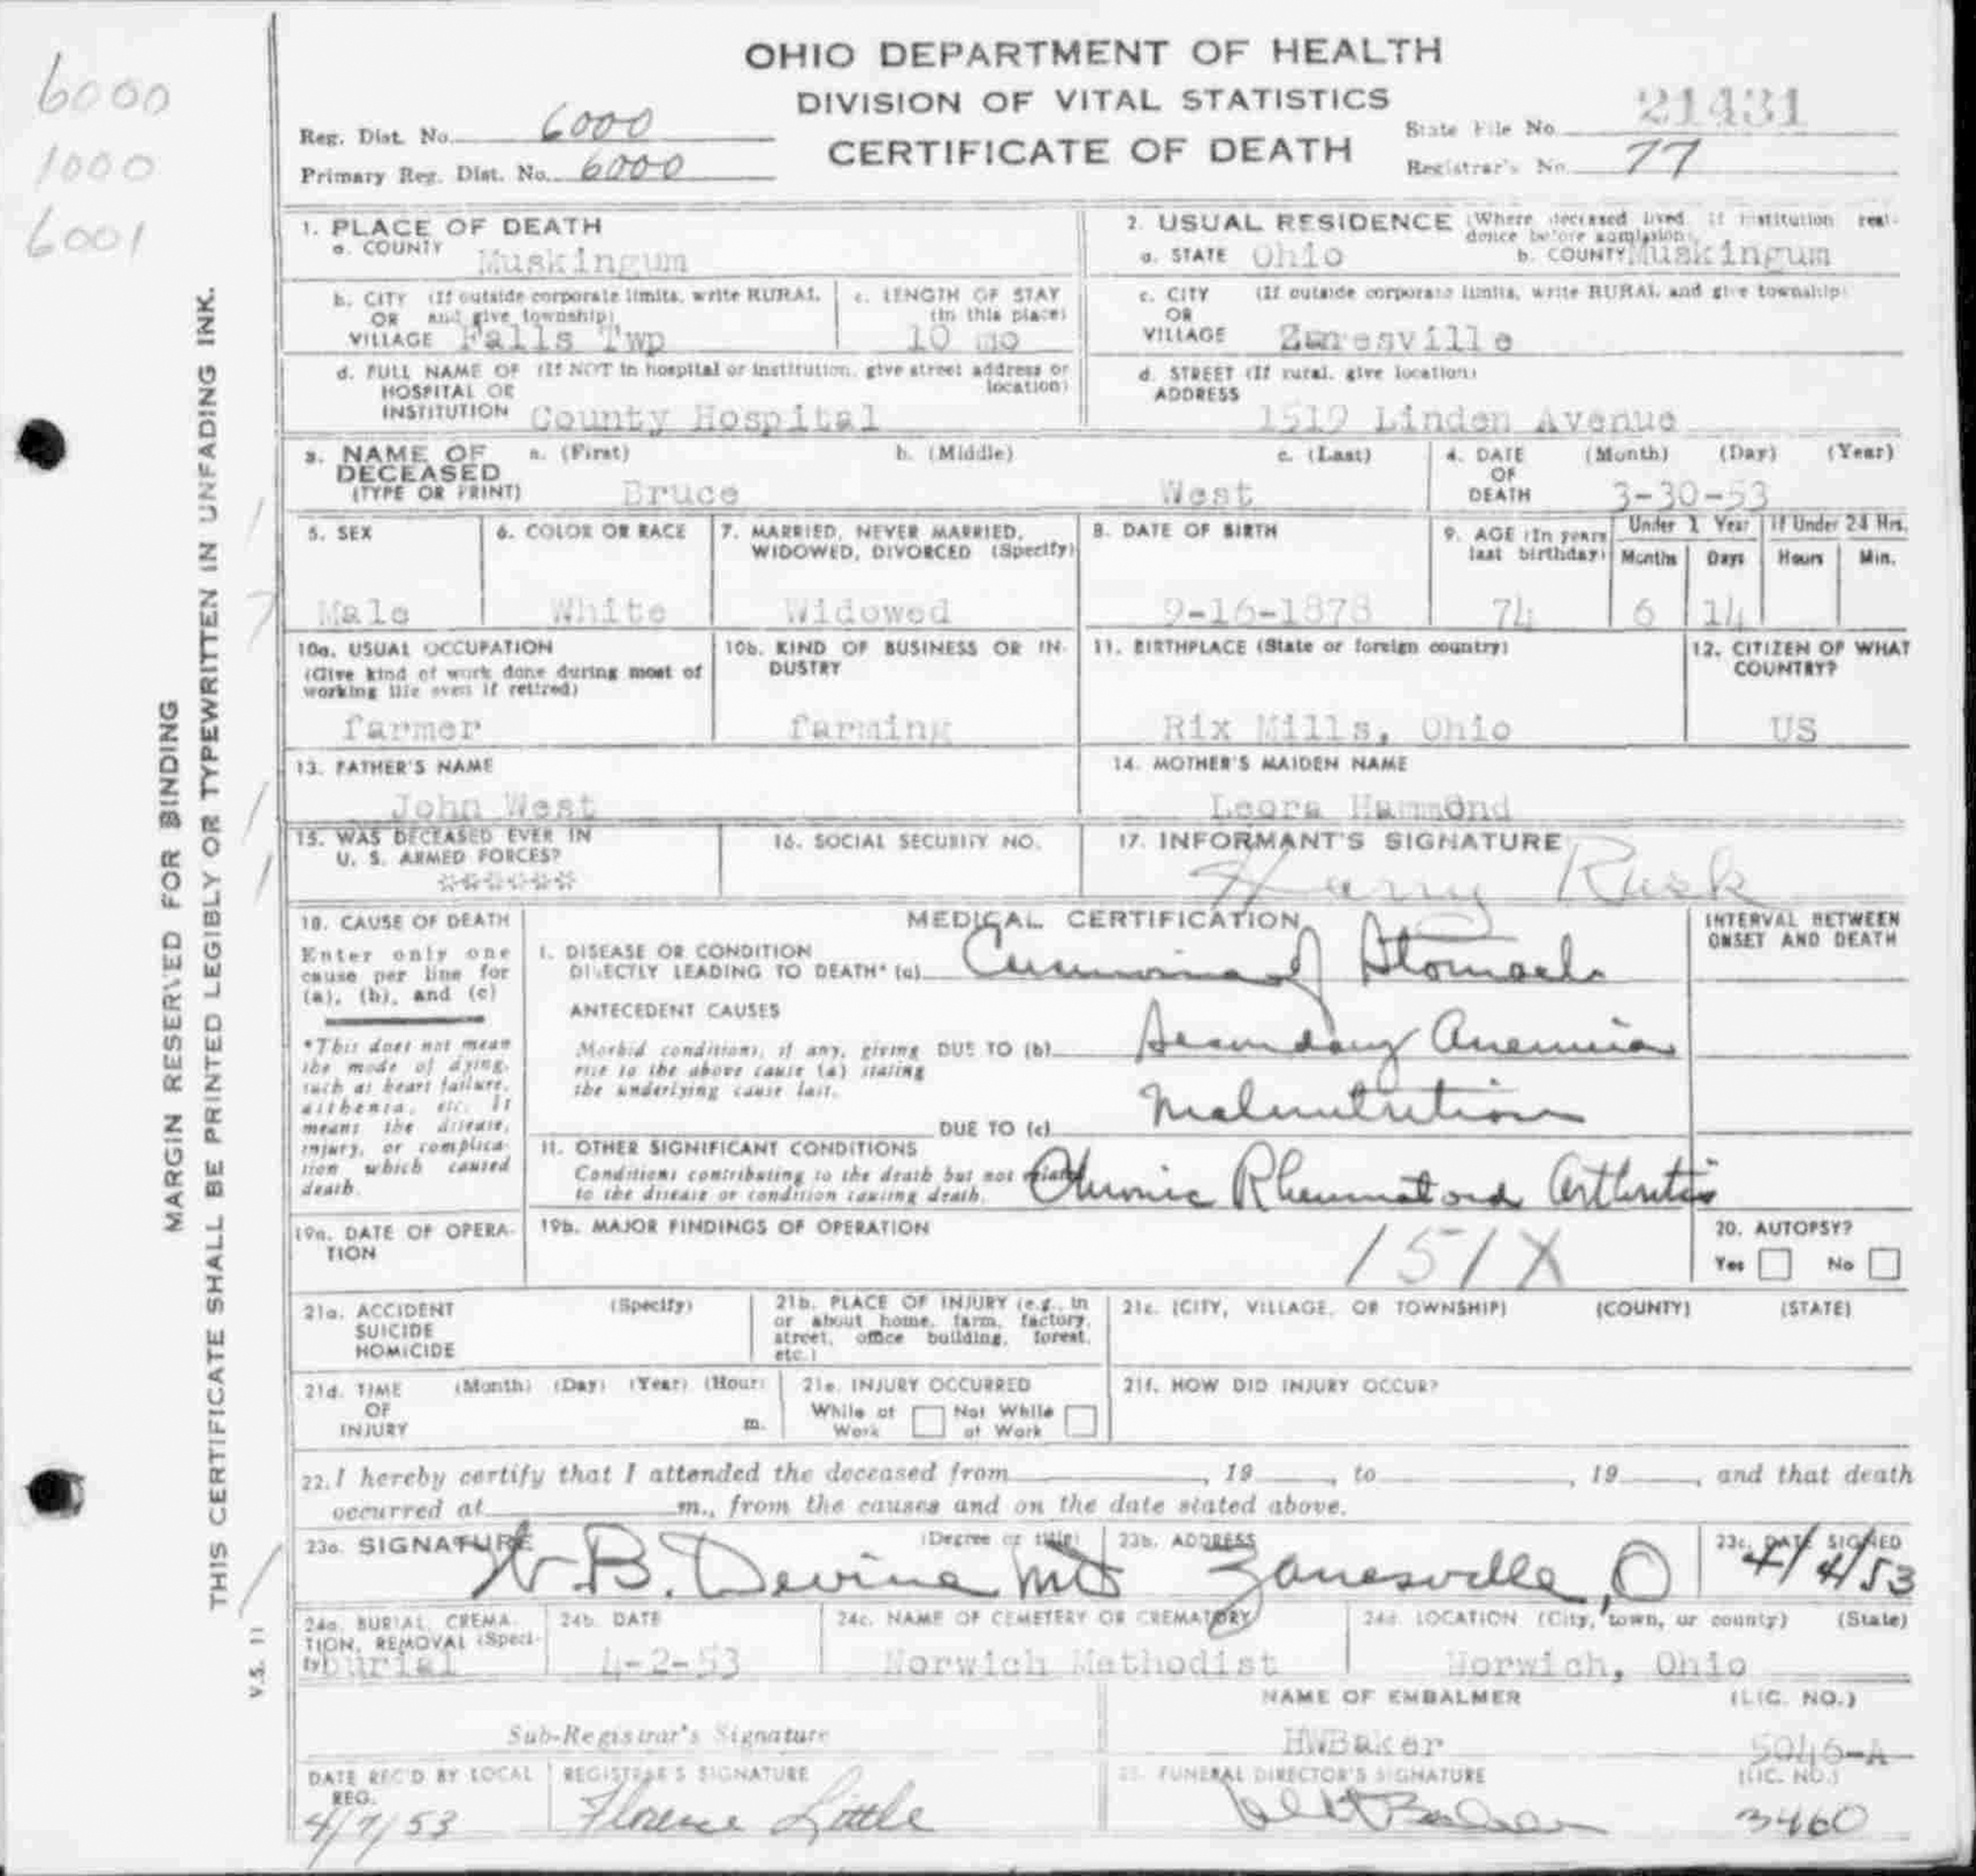 6000
1000
6001
OHIO DEPARTMENT OF HEALTH
DIVISION OF VITAL STATISTICS
CERTIFICATE OF DEATH
Reg. Dist. No. 6000
Primary Reg. Dist. No. 6000
State File No. 21431
Registrar's No. 77
MARGIN RESERVED FOR BINDING
THIS CERTIFICATE SHALL BE PRINTED LEGIBLY OR TYPEWRITTEN IN UNFADING INK.
V.S. 11
1. PLACE OF DEATH
a. COUNTY Muskingum
2. USUAL RESIDENCE (Where deceased lived. If institution resi-
dence before admission)
a. STATE Ohio b. COUNTY Muskingum
b. CITY (If outside corporate limits, write RURAL
OR and give township)
VILLAGE Falls Twp
c. LENGTH OF STAY
(in this place)
10 mo
c. CITY (If outside corporate limits, write RURAL and give township)
OR
VILLAGE Zanesville
d. FULL NAME OF (If NOT in hospital or institution, give street address or
HOSPITAL OR location)
INSTITUTION County Hospital
d. STREET (If rural, give location)
ADDRESS
1519 Linden Avenue
3. NAME OF a. (First) b. (Middle) c. (Last)
DECEASED
(TYPE OR PRINT) Bruce West
4. DATE (Month) (Day) (Year)
OF
DEATH 3-30-53
5. SEX
Male
6. COLOR OR RACE
White
7. MARRIED, NEVER MARRIED,
WIDOWED, DIVORCED (Specify)
Widowed
8. DATE OF BIRTH
9-16-1878
9. AGE (In years
last birthday)
74
Under 1 Year
Months Days
6 14
If Under 24 Hrs.
Hours Min.
10a. USUAL OCCUPATION
(Give kind of work done during most of
working life even if retired)
farmer
10b. KIND OF BUSINESS OR IN-
DUSTRY
farming
11. BIRTHPLACE (State or foreign country)
Rix Mills, Ohio
12. CITIZEN OF WHAT
COUNTRY?
US
13. FATHER'S NAME
John West
14. MOTHER'S MAIDEN NAME
Leora Hammond
15. WAS DECEASED EVER IN
U. S. ARMED FORCES?
******
16. SOCIAL SECURITY NO.
17. INFORMANT'S SIGNATURE
Harry Rusk
18. CAUSE OF DEATH
Enter only one
cause per line for
(a), (b), and (c)
*This does not mean
the mode of dying,
such as heart failure,
asthenia, etc. It
means the disease,
injury, or complica-
tion which caused
death.
MEDICAL CERTIFICATION
INTERVAL BETWEEN
ONSET AND DEATH
I. DISEASE OR CONDITION
DIRECTLY LEADING TO DEATH* (a) Carcinoma of Stomach
ANTECEDENT CAUSES
Morbid conditions, if any, giving DUE TO (b) Secondary Anemia
rise to the above cause (a) stating
the underlying cause last.
Malnutrition
DUE TO (c)
II. OTHER SIGNIFICANT CONDITIONS
Conditions contributing to the death but not related
to the disease or condition causing death. Chronic Rheumatoid Arthritis
19a. DATE OF OPERA-
TION
19b. MAJOR FINDINGS OF OPERATION
151X
20. AUTOPSY?
Yes No
21a. ACCIDENT (Specify)
SUICIDE
HOMICIDE
21b. PLACE OF INJURY (e.g., in
or about home, farm, factory,
street, office building, forest,
etc.)
21c. (CITY, VILLAGE, OR TOWNSHIP) (COUNTY) (STATE)
21d. TIME (Month) (Day) (Year) (Hour)
OF
INJURY m.
21e. INJURY OCCURRED
While at Not While
Work at Work
21f. HOW DID INJURY OCCUR?
22. I hereby certify that I attended the deceased from , 19 , to , 19 , and that death
occurred at m., from the causes and on the date stated above.
23a. SIGNATURE (Degree or title)
W B. Devine MD
23b. ADDRESS
Zanesville, O
23c. DATE SIGNED
4/4/53
24a. BURIAL, CREMA-
TION, REMOVAL (Speci-
fy) burial
24b. DATE
4-2-53
24c. NAME OF CEMETERY OR CREMATORY
Norwich Methodist
24d. LOCATION (City, town, or county) (State)
Norwich, Ohio
Sub-Registrar's Signature
NAME OF EMBALMER (LIC. NO.)
HWBaker 5046-A
DATE REC'D BY LOCAL
REG.
4/7/53
REGISTRAR'S SIGNATURE
Florence Little
25. FUNERAL DIRECTOR'S SIGNATURE (LIC. NO.)
Baker 3460